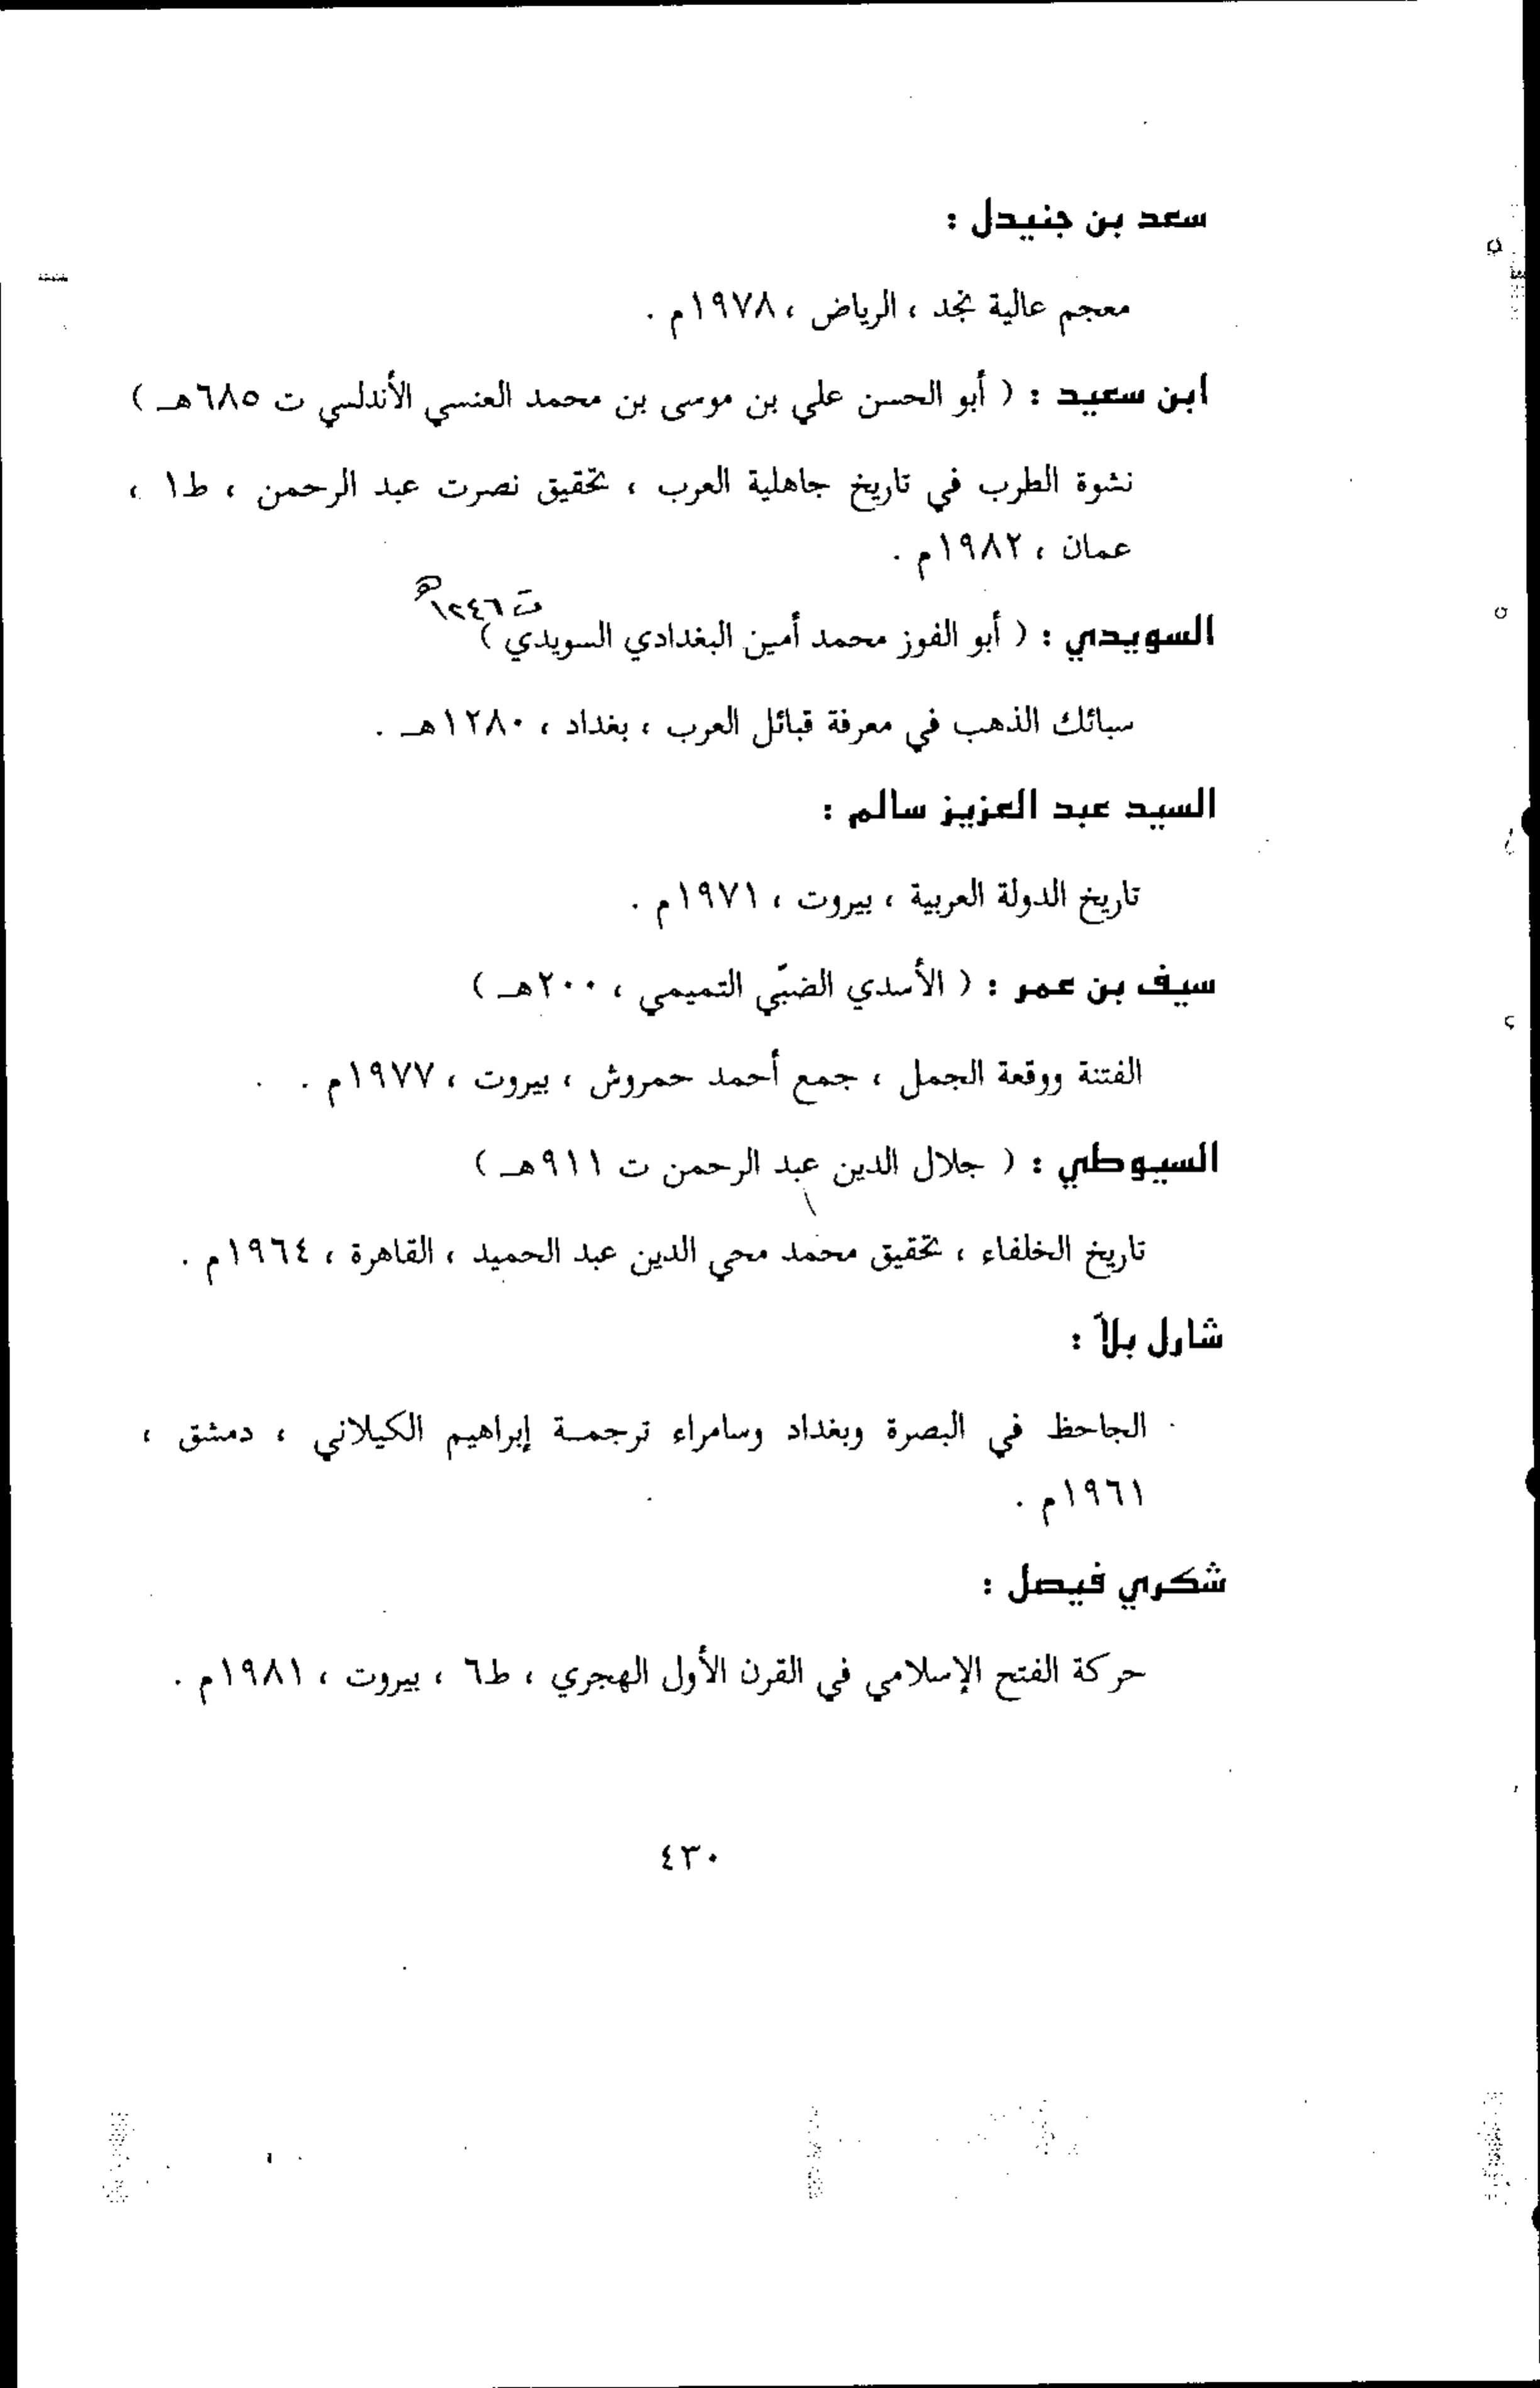 سعد بن جنيدل :
معجم عالية نجد ، الرياض ، ١٩٧٨م .
ابن سعيد : ( أبو الحسن علي بن موسى بن محمد العنسي الأندلسي ت ٦٨٥هـ )
نشوة الطرب في تاريخ جاهلية العرب ، تحقيق نصرت عبد الرحمن ، ط١ ،
عمان ، ١٩٨٢م .
ت ١٢٤٦هـ
السويدي : ( أبو الفوز محمد أمين البغدادي السويدي )
سبائك الذهب في معرفة قبائل العرب ، بغداد ، ١٢٨٠هـ .
السيد عبد العزيز سالم :
تاريخ الدولة العربية ، بيروت ، ١٩٧١م .
سيف بن عمر : ( الأسدي الضبّي التميمي ، ٢٠٠هـ )
الفتنة ووقعة الجمل ، جمع أحمد حمروش ، بيروت ، ١٩٧٧م .
السيوطي : ( جلال الدين عبد الرحمن ت ٩١١هـ )
تاريخ الخلفاء ، تحقيق محمد محي الدين عبد الحميد ، القاهرة ، ١٩٦٤م .
شارل بلاّ :
الجاحظ في البصرة وبغداد وسامراء ترجمـة إبراهيم الكيلاني ، دمشق ،
١٩٦١م .
شكري فيصل :
حركة الفتح الإسلامي في القرن الأول الهجري ، ط٦ ، بيروت ، ١٩٨١م .
٤٣٠